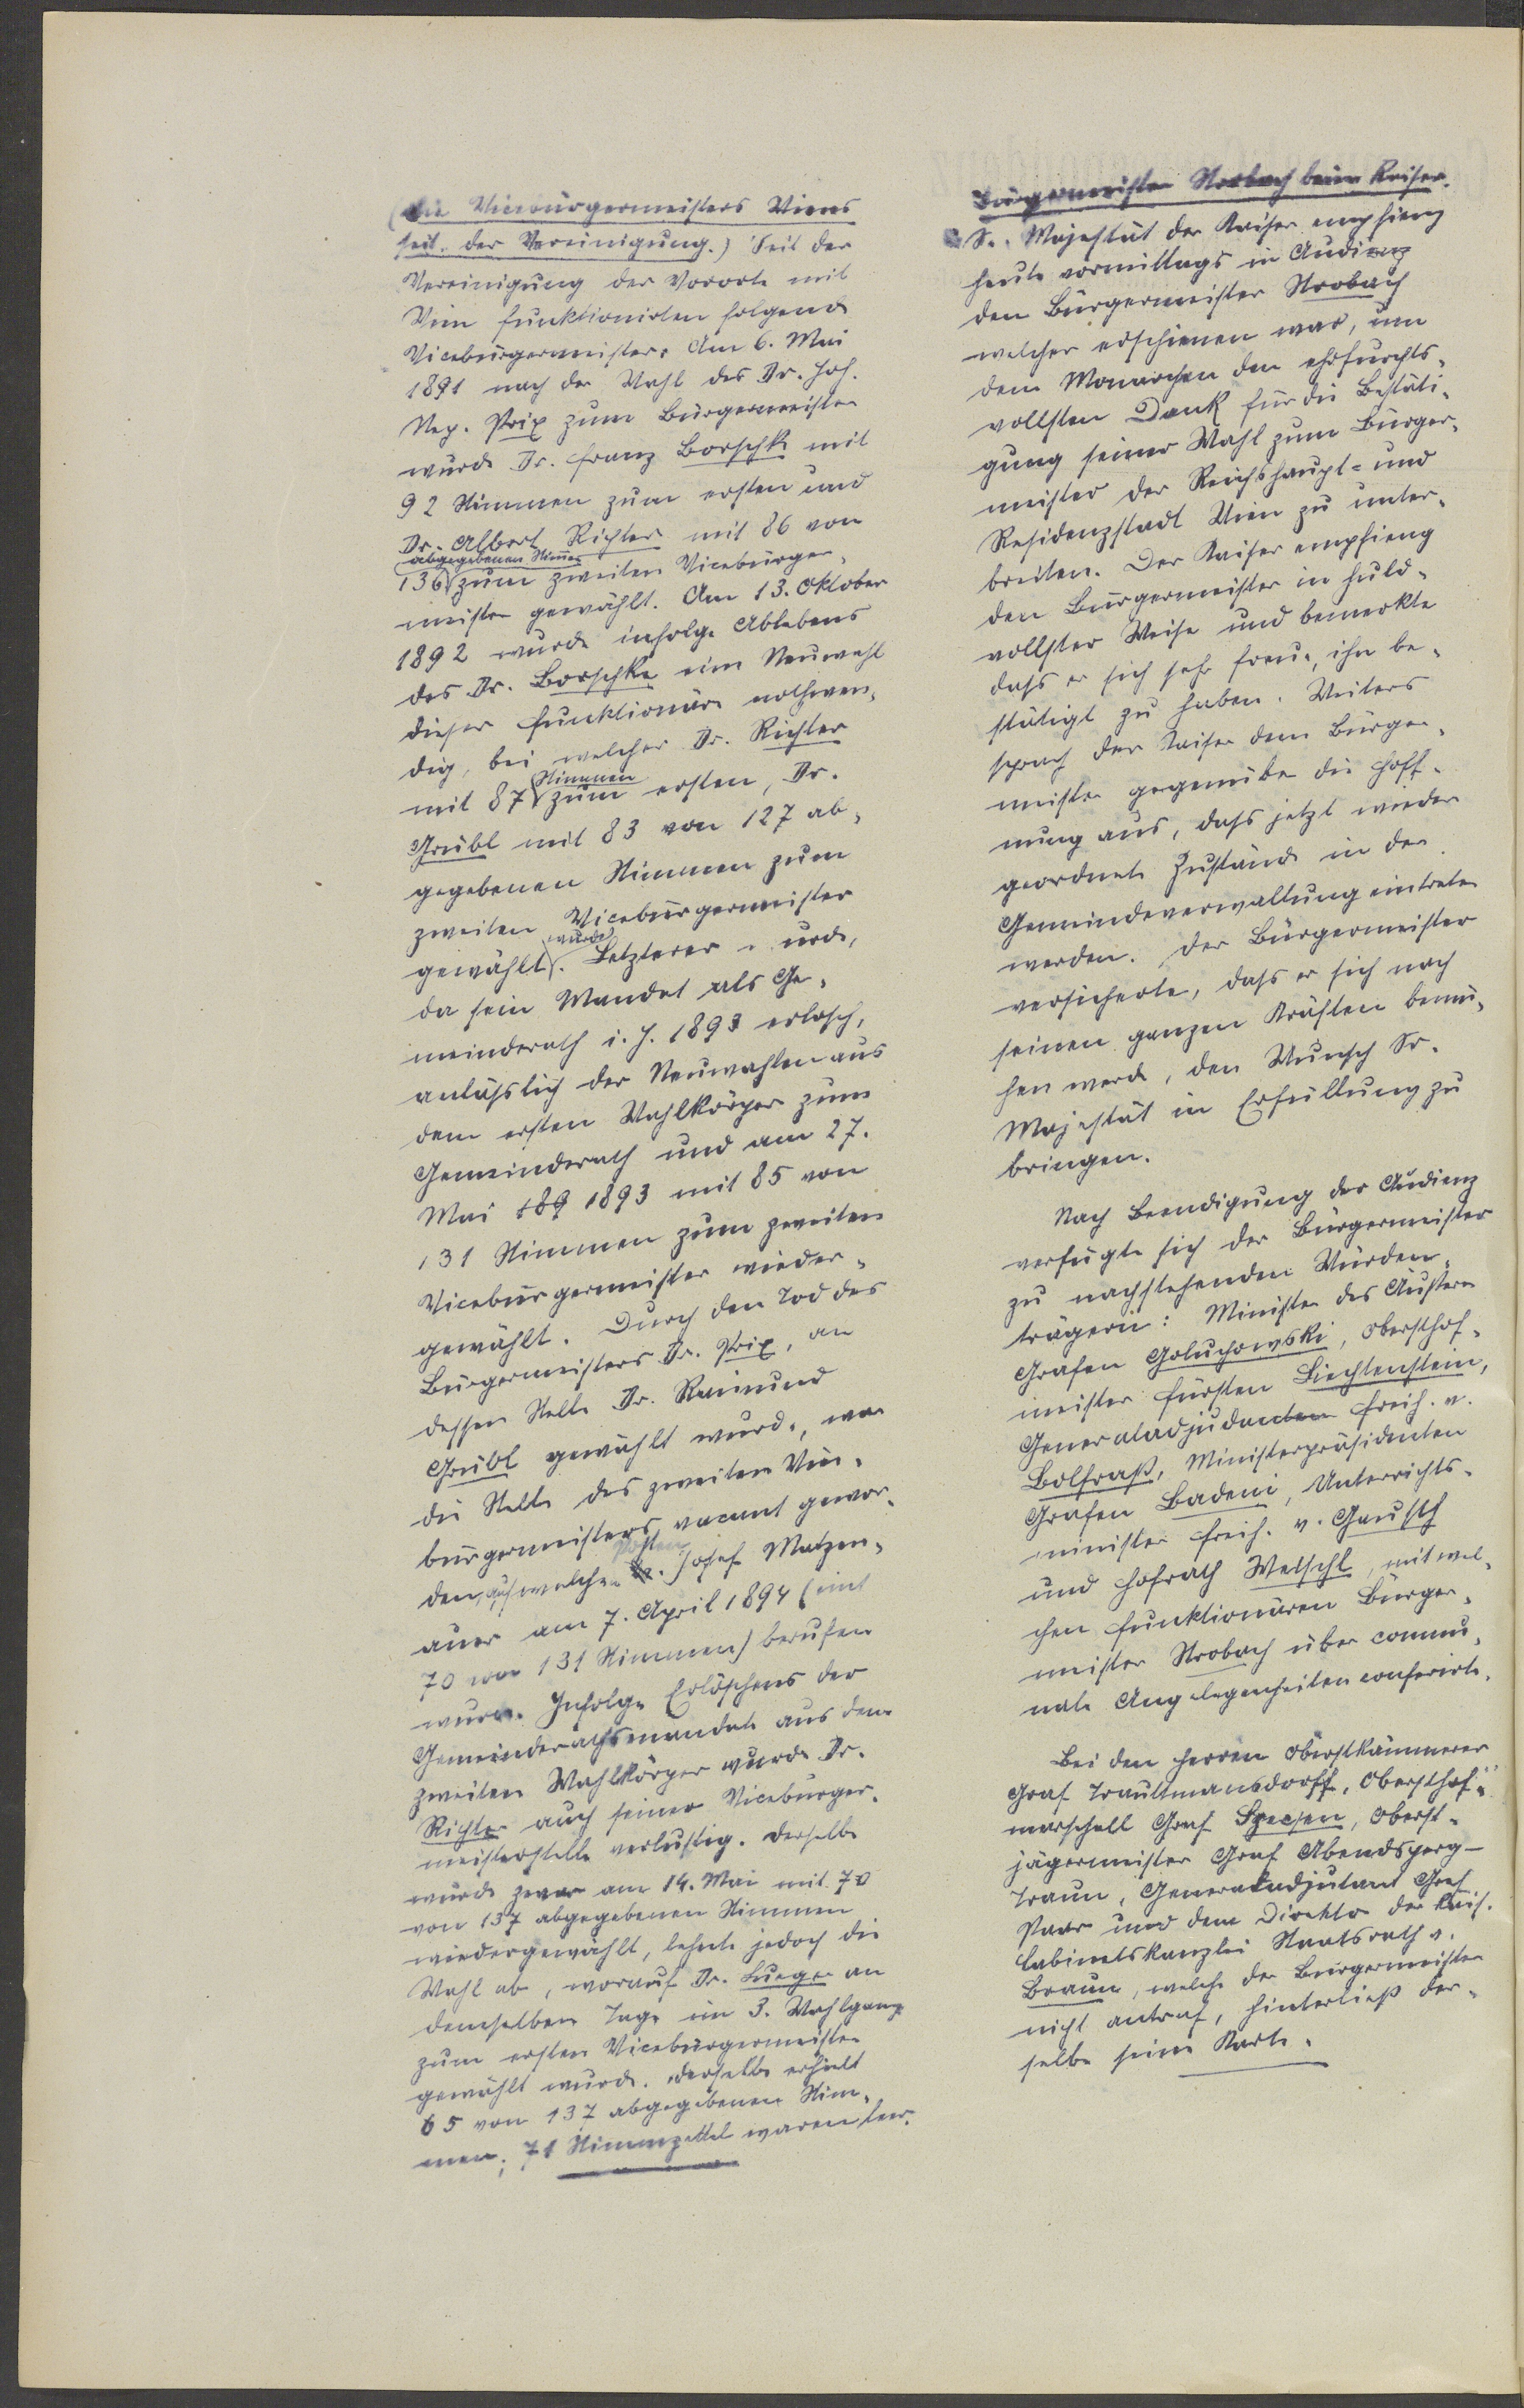 (Die Vicebürgermeisters Wiens
seit der Vereinigung.) Seit der
Vereinigung der Vororte mit
Wien funktionirten folgende
Vicebürgermeister: Am 6. Mai
1891 nach der Wahl des Dr. Joh.
Nep. Prix zum Bürgermeister
wurde Dr. Franz Borschke mit
92 Stimmen zum ersten und
Dr. Albert Richter mit 86 von
abgegebenen Stimmen
136 zum zweiten Vicebürger-
meister gewählt. Am 13. Oktober
1892 wurde infolge Ablebens
des Dr. Borschke eine Neuwahl
dieser Funktionäre nothwen-
dig, bei welcher Dr. Richter
Stimmen
mit 87 zum ersten, Dr.
Grübl mit 83 von 127 ab-
gegebenen Stimmen zum
zweiten Vicebürgermeister
wurde
gewählt. Letzterer wurde,
da sein Mandat als Ge-
meinderath i. J. 1893 erlosch,
anläßlich der Neuwahlen aus
dem ersten Wahlkörper zum
Gemeinderath und am 27.
Mai 189 1893 mit 85 von
131 Stimmen zum zweiten
Vicebürgermeister wieder-
gewählt. Durch den Tod des
Bürgermeisters Dr. Prix, an
dessen Stelle Dr. Raimund
Grübl gewählt wurde, war
die Stelle des zweiten Vice-
bürgermeisters vacant gewor-
Posten
den, auf welchen Dr. Josef Matzen-
auer am 7. April 1894 (mit
70 von 131 Stimmen) berufen
wurde. Infolge Erlöschens der
Gemeinderathsmandate aus dem
zweiten Wahlkörper wurde Dr.
Richter auch seiner Vicebürger-
meisterstelle verlustig. Derselbe
wurde zwar am 14. Mai mit 70
von 137 abgegebenen Stimmen
wiedergewählt, lehnte jedoch die
Wahl ab, worauf Dr. Lueger an
demselben Tage im 3. Wahlgang
zum ersten Vicebürgermeister
gewählt wurde. Derselbe erhielt
65 von 137 abgegebenen Stim-
men; 71 Stimmzettel waren leer.
Bürgermeister Strobach beim Kaiser.
Se. Majestät der Kaiser empfieng
heute vormittags in Audienz
den Bürgermeister Strobach
welcher erschienen war, um
dem Monarchen den ehrfurchts-
vollsten Dank für die Bestäti-
gung seiner Wahl zum Bürger-
meister der Reichshaupt- und
Residenzstadt Wien zu unter-
breiten. Der Kaiser empfieng
den Bürgermeister in huld-
vollster Weise und bemerkte
dass er sich sehr freue, ihn be-
stätigt zu haben. Weiters
sprach der Kaiser dem Bürger-
meister gegenüber die Hoff-
nung aus, dass jetzt wieder
geordnete Zustände in der
Gemeindeverwaltung eintreten
werden. Der Bürgermeister
versicherte, dass er sich nach
seinen ganzen Kräften bemü-
hen werde, den Wunsch Sr.
Majestät in Erfüllung zu
bringen.
Nach Beendigung der Audienz
verfügte sich der Bürgermeister
zu nachstehenden Würden-
trägern: Minister des Äußern
Grafen Goluchowski, Obersthof-
meister Fürsten Liechtenstein,
Generaladjudanten Freih. v.
Bolfraß, Ministerpräsidenten
Grafen Badeni, Unterrichts-
minister Freih. v. Gautsch
und Hofrath Welschl, mit wel-
chen Funktionären Bürger-
meister Strobach über commu-
nale Angelegenheiten conferirte.
Bei den Herren Oberstkämmerer
Graf Trauttmansdorff, Obersthof-
marschall Graf Szecsen, Oberst-
jägermeister Graf Abendsperg-
Traun, Generaladjutant Graf
Paar und dem Direktor der kais.
Cabinetskanzlei Staatsrath v.
Braun, welche der Bürgermeister
nicht antraf, hinterließ der-
selbe seine Karte.